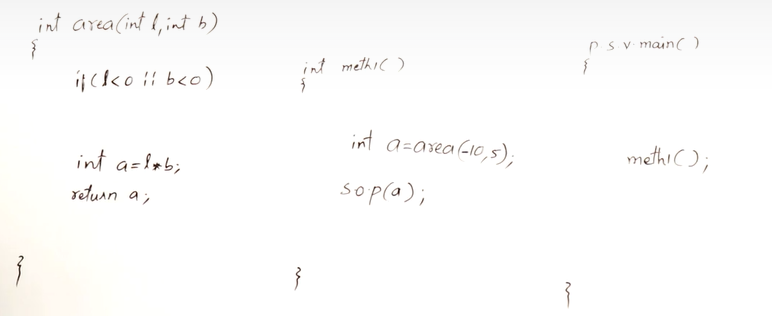 int area(int l, int b)
{
if(l<0 || b<0)
int a=l*b;
return a;
}
int meth1()
{
int a=area(-10,5);
s.o.p(a);
}
p s v main()
{
meth1();
}